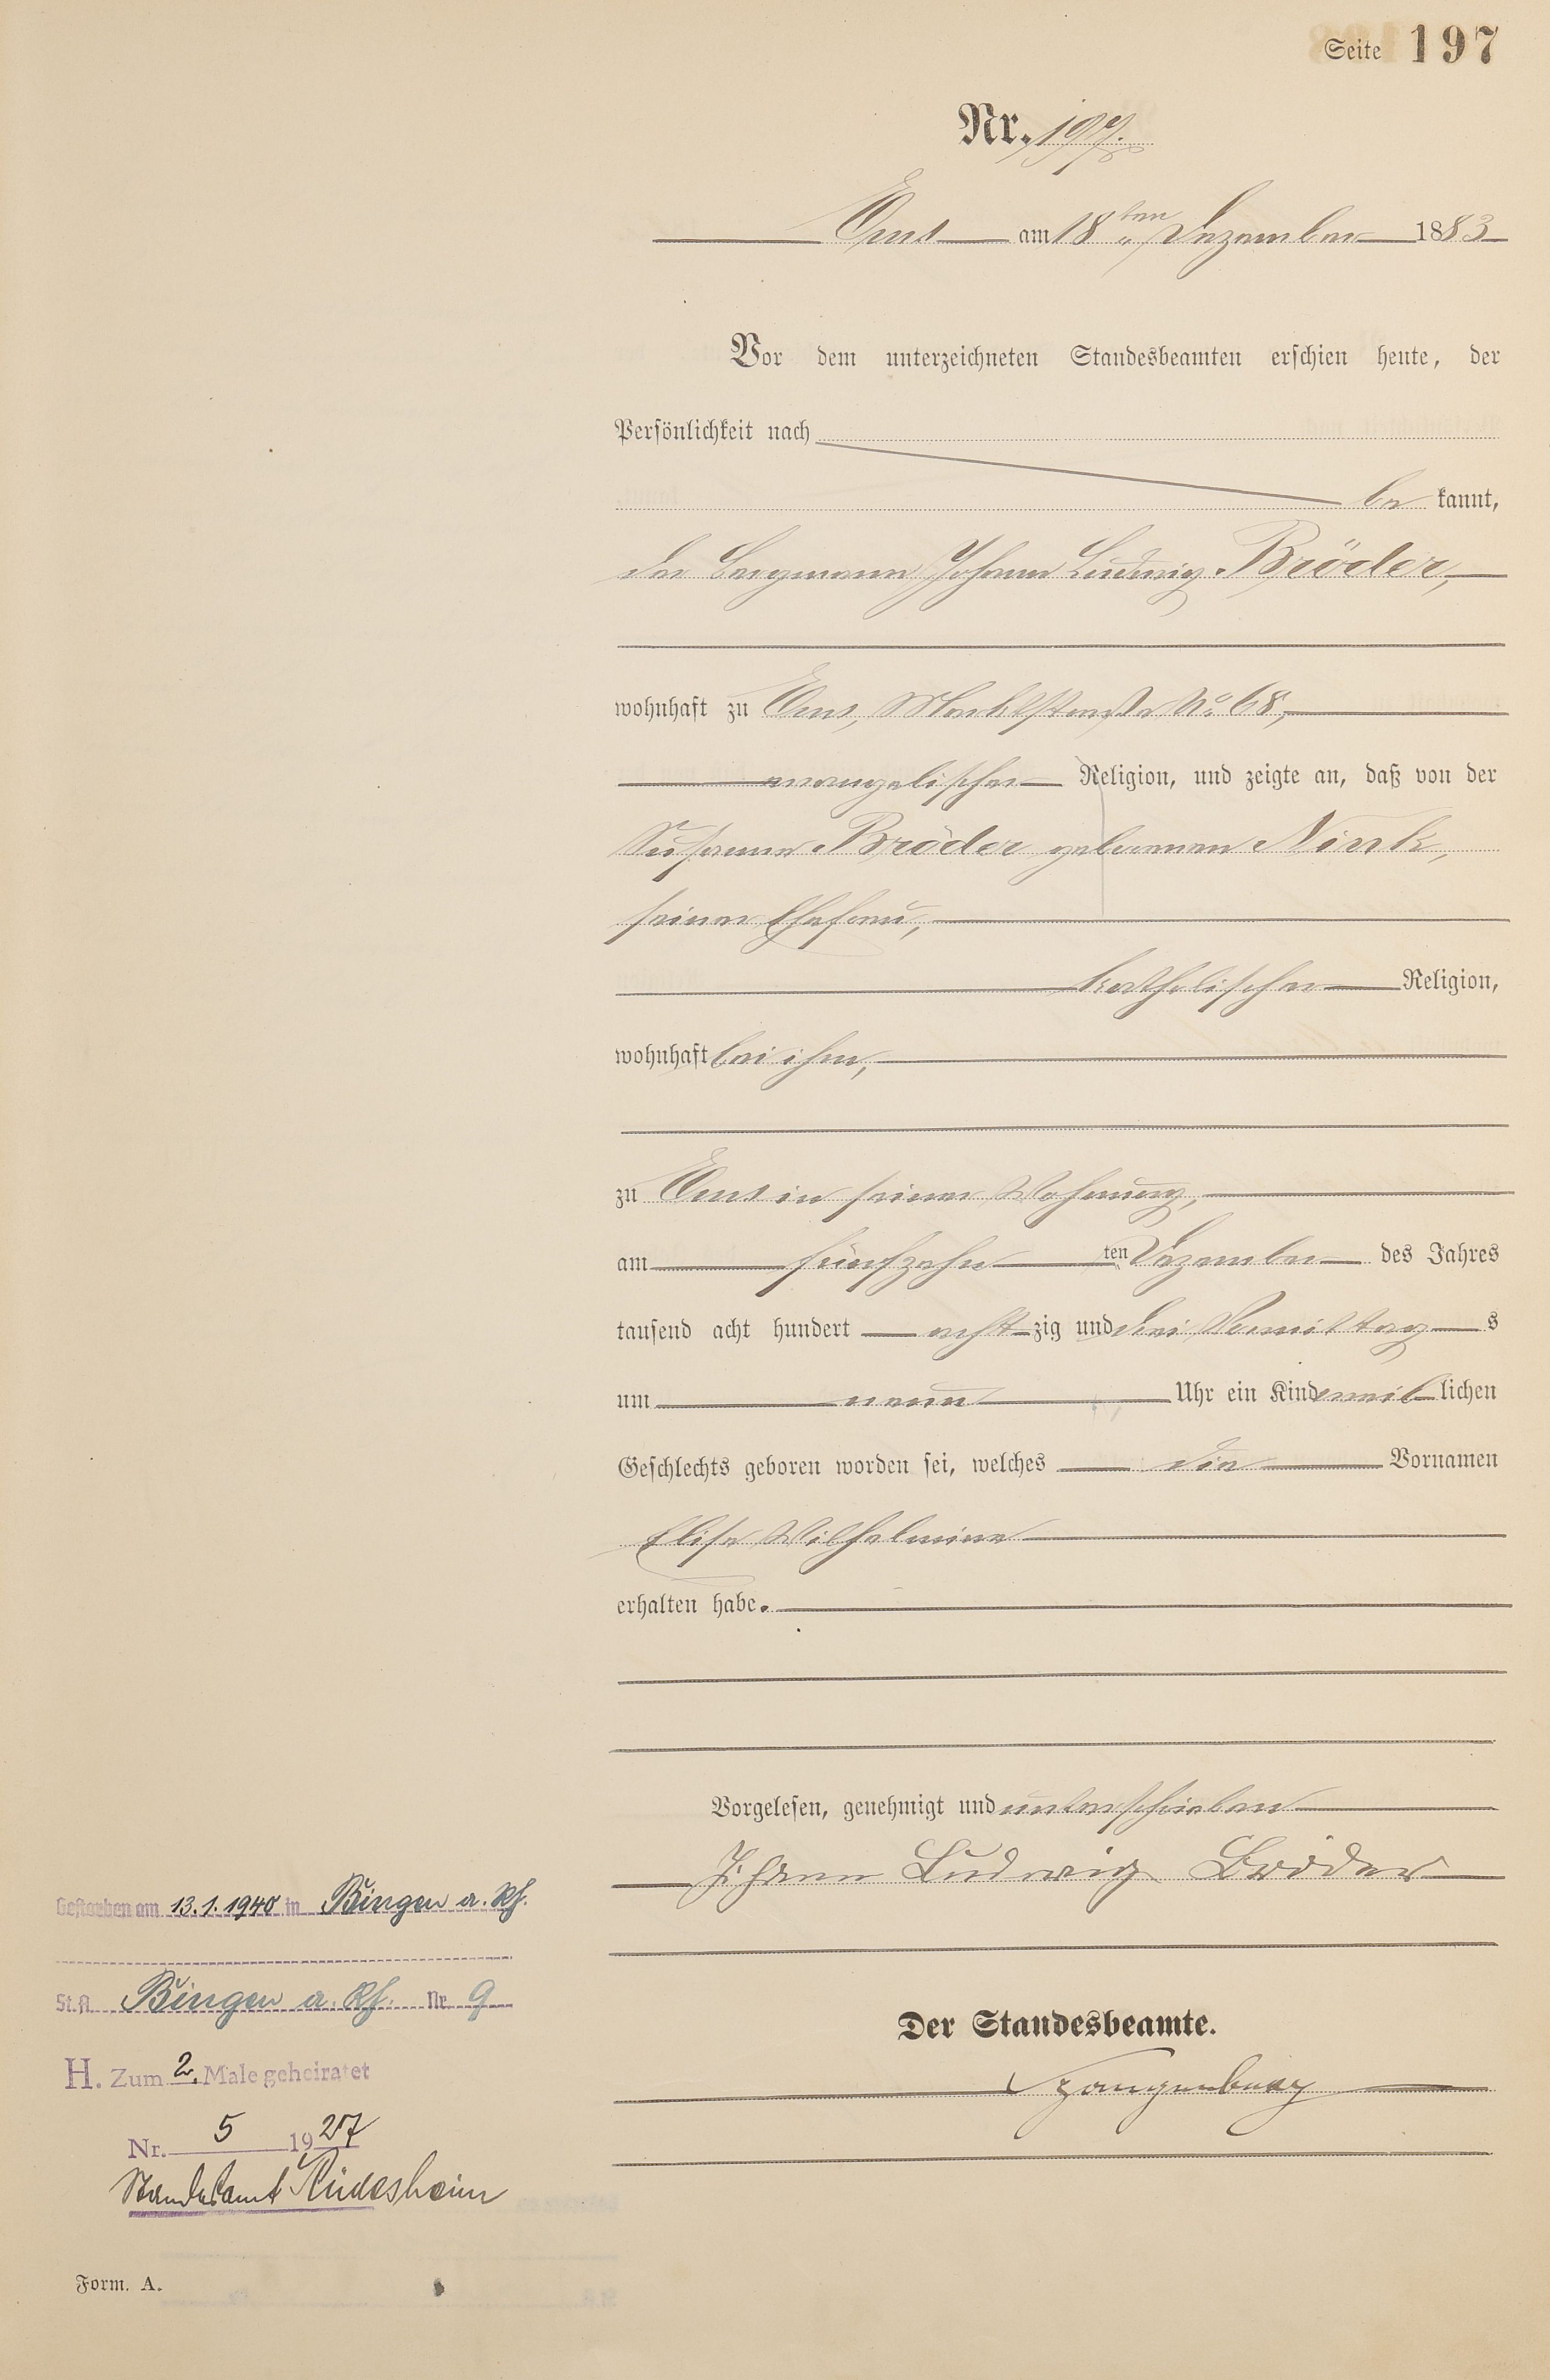 Seite 197
Nr. 197.
Ems am 18ten Dezember 1883
Vor dem unterzeichneten Standesbeamten erschien heute, der
Persönlichkeit nach
be kannt,
der Bergmann Johann Ludwig Bröder,
wohnhaft zu Ems, Marktstraße No 68,
evangelischer Religion, und zeigte an, daß von der
Susanna Bröder geborenen Nink,
seiner Ehefrau,
katholischer Religion,
wohnhaft bei ihm,
zu Ems in seiner Wohnung,
am fünfzehn ten Dezember des Jahres
tausend acht hundert acht zig und drei Vormittag s
um neun Uhr ein Kind weib lichen
Geschlechts geboren worden sei, welches die Vornamen
Elise Wilhelmine
erhalten habe.
Vorgelesen, genehmigt und unterschrieben
Johann Ludwig Bröder
Der Standesbeamte.
Spangenberg
Gestorben am 13.1.1940 in Bingen a. Rh.
St.A. Bingen a. Rh. Nr. 9
H. Zum 2. Male geheiratet
Nr. 5 1927
Standesamt Rüdesheim
Form. A.